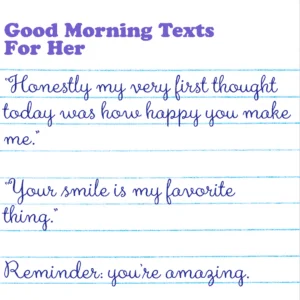 Good Morning Texts
For Her
"Honestly my very first thought
today was how happy you make
me."
"Your smile is my favorite
thing."
Reminder: you're amazing.